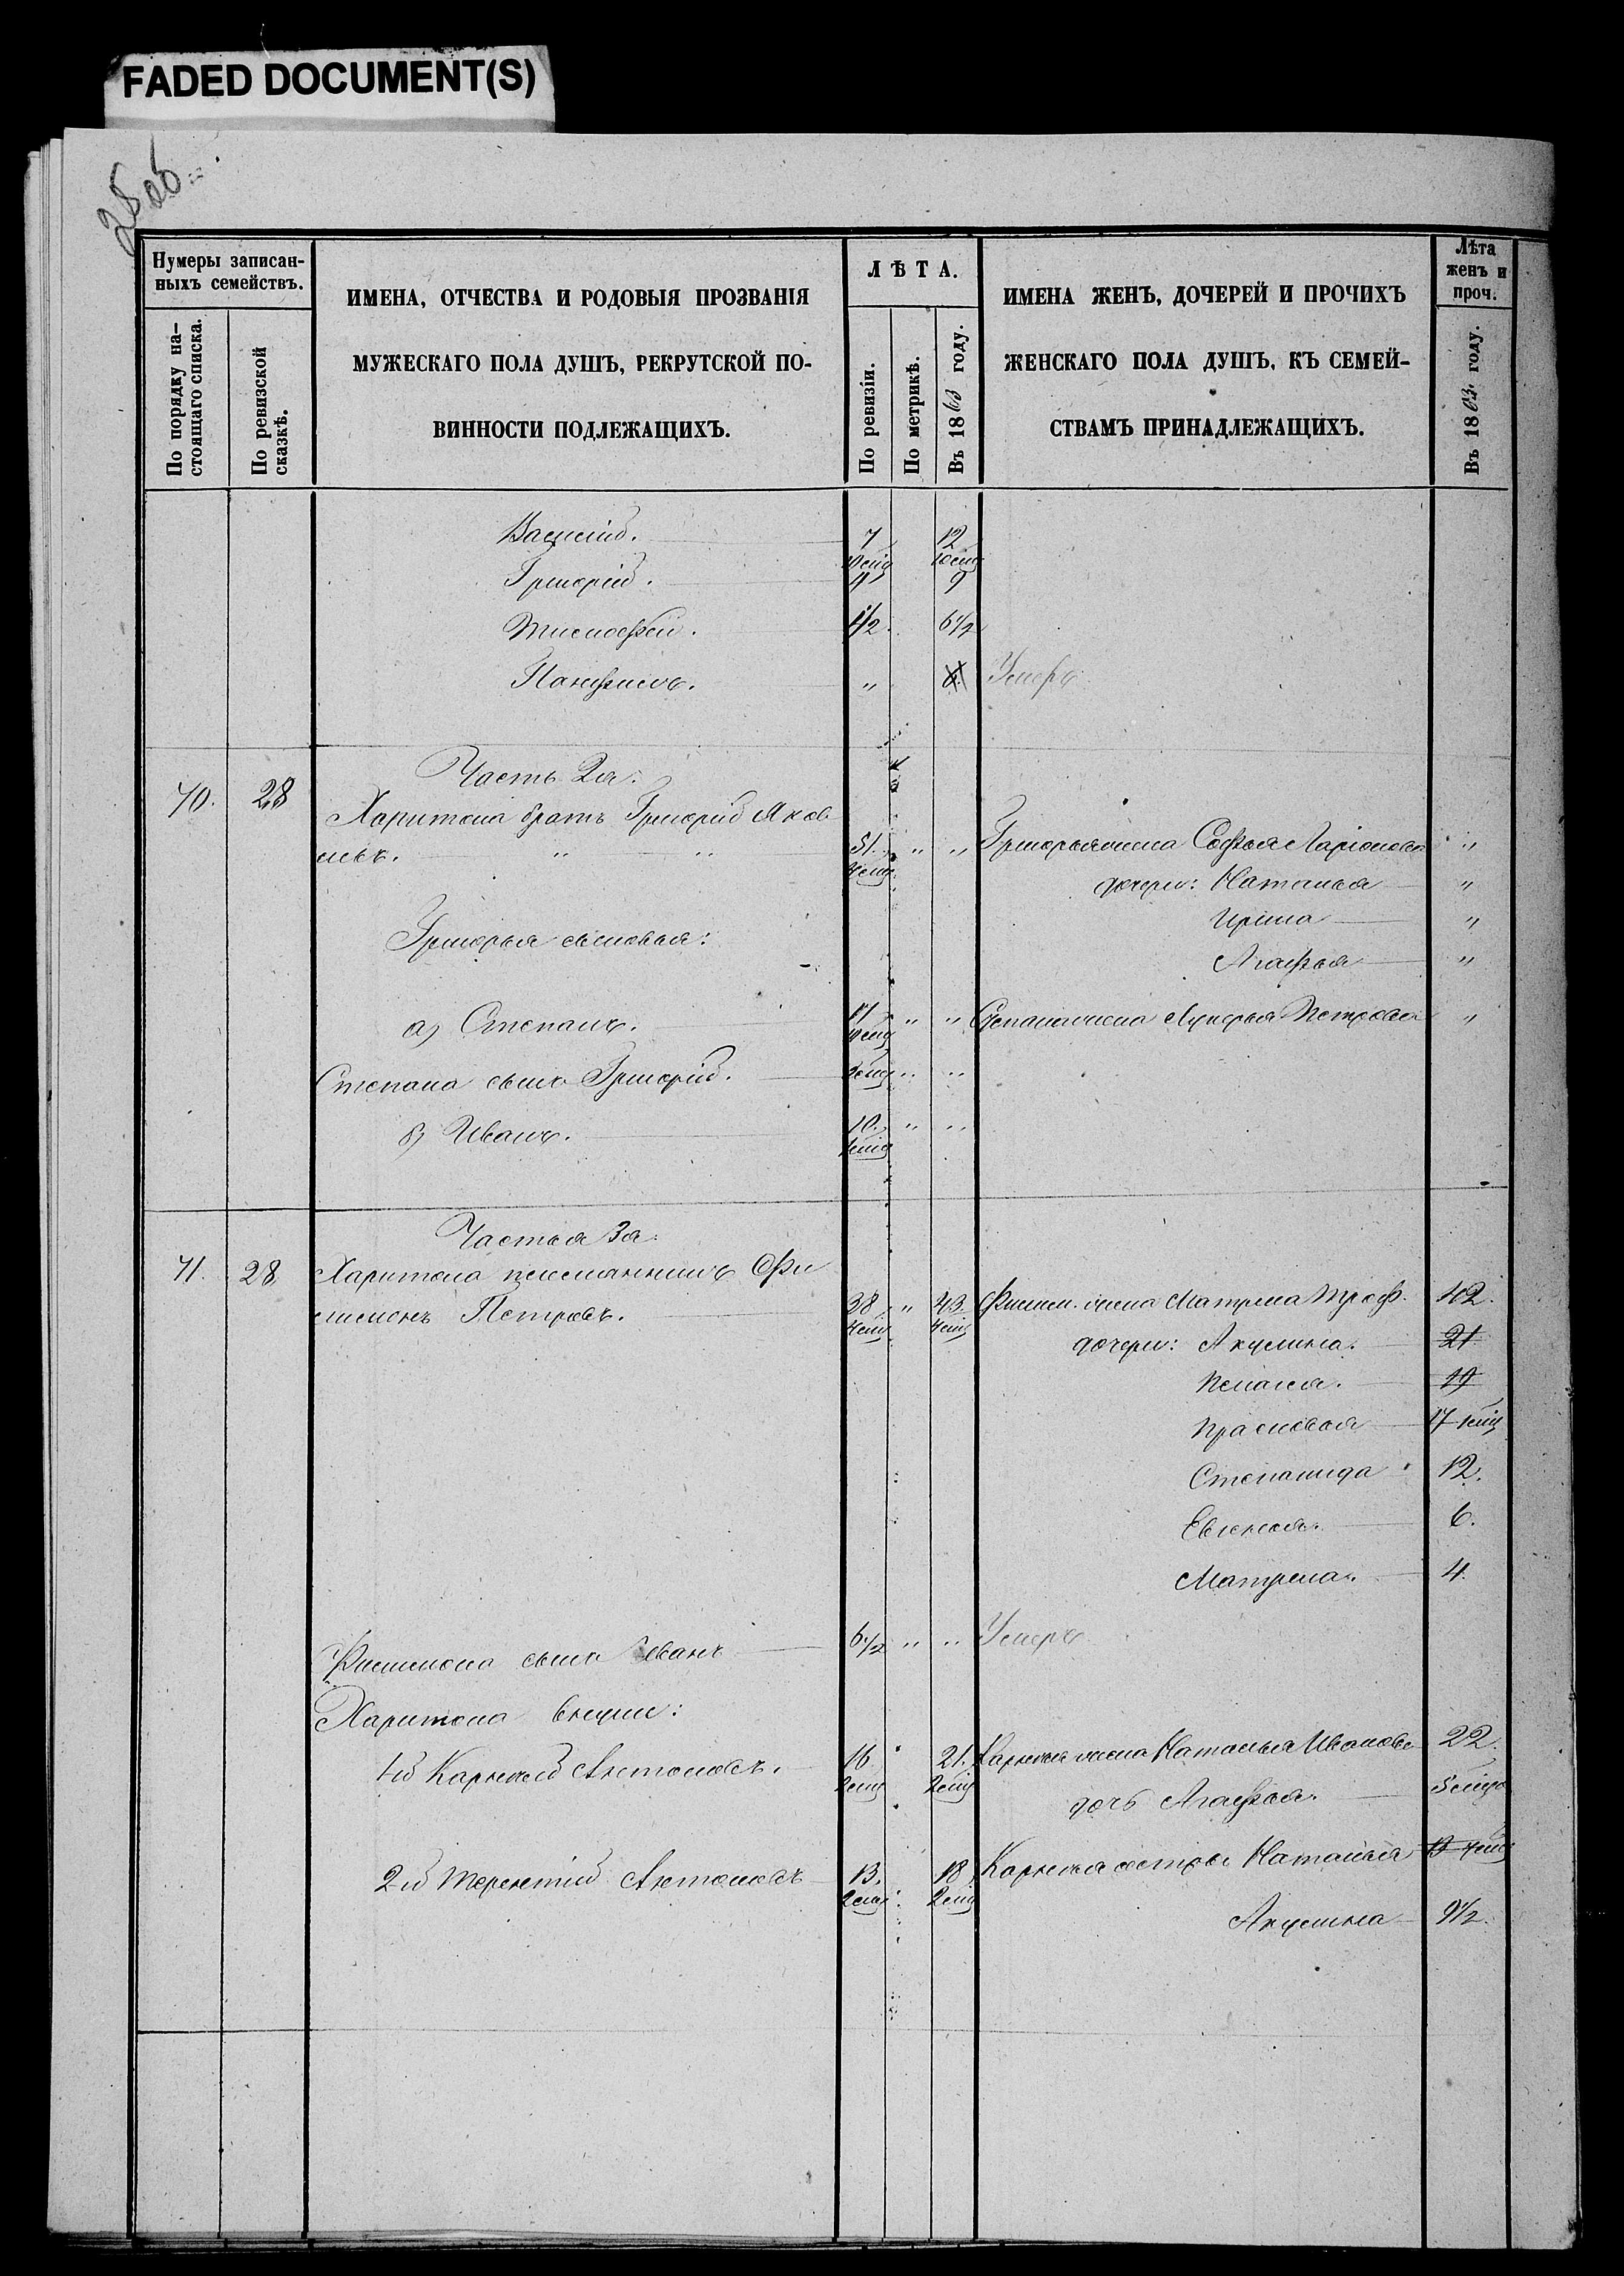 FADED DOCUMENT(S)
28 об.
Нумеры записан-
ныхъ семействъ.
По порядку на-
стоящаго списка.
По ревизской
сказкѣ.
ИМЕНА, ОТЧЕСТВА И РОДОВЫЯ ПРОЗВАНІЯ
МУЖЕСКАГО ПОЛА ДУШЪ, РЕКРУТСКОЙ ПО-
ВИННОСТИ ПОДЛЕЖАЩИХЪ.
ЛѢТА.
По ревизіи.
По метрикѣ.
Въ 1863 году.
ИМЕНА ЖЕНЪ, ДОЧЕРЕЙ И ПРОЧИХЪ
ЖЕНСКАГО ПОЛА ДУШЪ, КЪ СЕМЕЙ-
СТВАМЪ ПРИНАДЛЕЖАЩИХЪ.
Лѣта
женъ и
проч.
Въ 1863 году.
Василій. 7 12
Григорій. 4 9
Тимофей. 1/2 6 1/2
Панфилъ. " Умеръ
Часть 2я.
70. 28 Харитона братъ Григорій Яков
левъ. " " 51 " " Григорья жена Софья Ларіонова "
дочери: Наталья "
Ирина "
Григорья сыновья:
Агафья "
а) Степанъ. 17 " " Степана жена Лукерья Петрова "
Степана сынъ Григорій. " "
б) Иванъ. 10. " "
Частья 3я.
71. 28 Харитона племянникъ Фи
лимонъ Петровъ. 38 " 43 Филим. жена Матрена Троф. 42.
дочери: Акулина. 21
Пелагея. 19
Прасковья 17
Степанида 12.
Евгенья. 6.
Матрена. 4.
Филимона сынъ Иванъ 6 1/2 " " Умеръ
Харитона внуки:
1й Карней Антоновъ. 16 21. Карнея жена Наталья Иванова 22.
дочь Агафья.
2й Терентій Антоновъ 13. 18 Карнея сестры Наталья
Акулина 9 1/2.